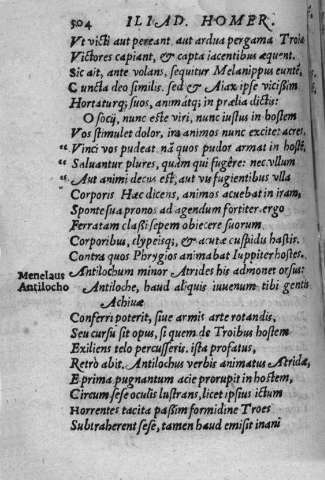 504 ILIAD. HOMER.
Vt victi aut pereant, aut ardua pergama Troiæ
Victores capiant, & capta iacentibus æquent.
Sic ait, ante volans, sequitur Melanippus euntẽ,
Cuncta deo similis. sed & Aiax ipse vicißim
Hortaturq; suos, animátq; in prælia dictis:
O socij, nunc este viri, nunc iustus in hostem
Vos stimulet dolor, ira animos nunc excitet acres,
“Vinci vos pudeat. nã quos pudor armat in hostẽ,
“Saluantur plures, quàm qui fugêre: nec vllum
“Aut animi decus est, aut vis fugientibus vlla
Corporis Hæc dicens, animos acuebat in iram,
Sponte sua pronos ad agendum fortiter. ergo
Ferratam claßi sepem obiecere suorum
Corporibus, clypeisq;, & acutæ cuspidis hastis.
Contra quos Phrygios animabat Iuppiter hostes.
Menelaus Antilochum minor Atrides his admonet orsus:
Antilocho Antiloche, haud aliquis iuuenum tibi gentis
Achiuæ
Conferri poterit, siue armis arte rotandis,
Seu cursu sit opus, si quem de Troibus hostem
Exiliens telo percusseris. ista profatus,
Retrò abit. Antilochus verbis animatus Atridæ,
E prima pugnantum acie prorupit in hostem,
Circum sese oculis lustrans, licet ipsius ictum
Horrentes tacita paßim formidine Troes
Subtraherent sesè, tamen haud emisit inani